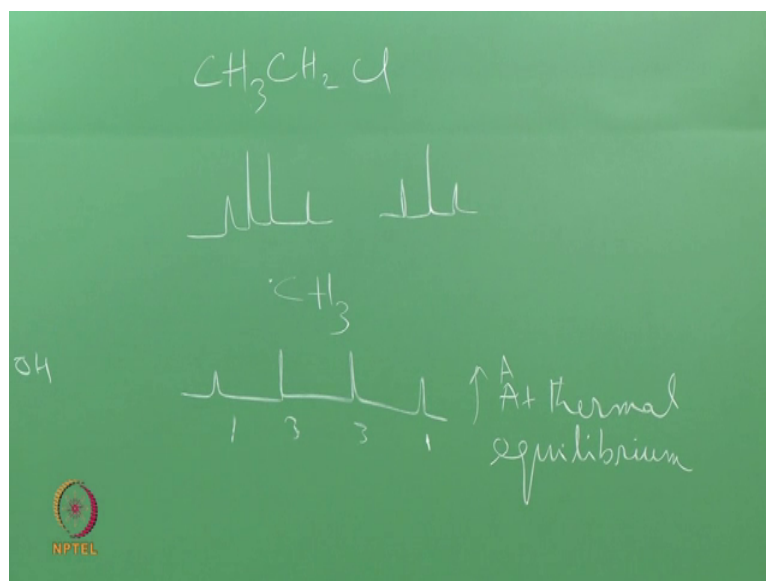 CH3CH2Cl
·CH3
OH
1 3 3 1
↑ A
At thermal
equilibrium
NPTEL